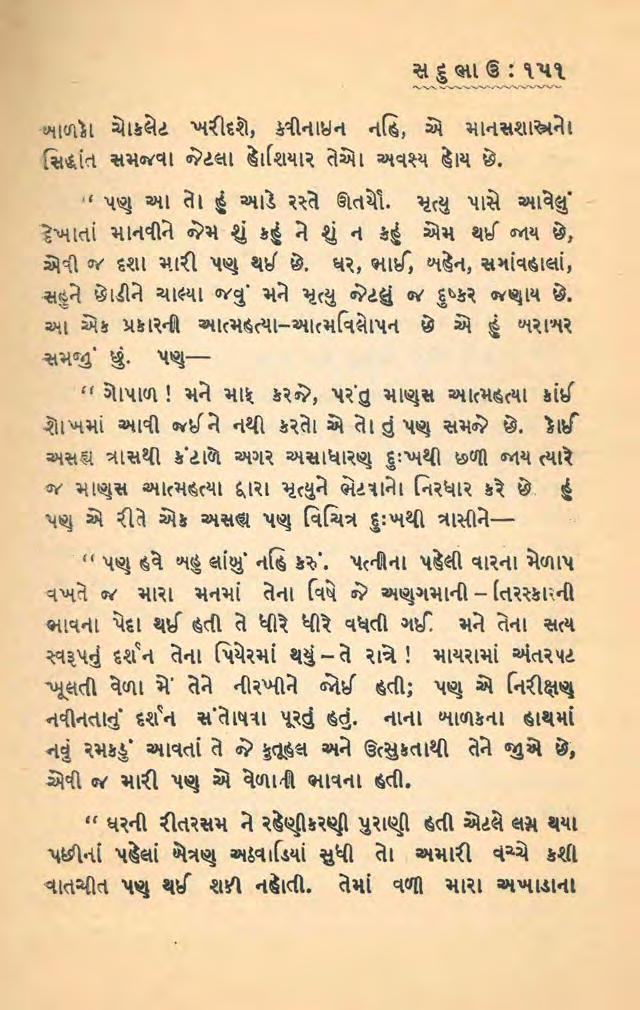 સદુભાઉ : ૧૫૧
બાળકો ચોકલેટ ખરીદશે, ક્વીનાઇન નહિ, એ માનસશાસ્ત્રનો
સિદ્ધાંત સમજવા જેટલા હોશિયાર તેઓ અવશ્ય હોય છે.
“ પણ આ તો હું આડે રસ્તે ઊતર્યો. મૃત્યુ પાસે આવેલું
દેખાતાં માનવીને જેમ શું કહું ને શું ન કહું એમ થઈ જાય છે,
એવી જ દશા મારી પણ થઈ છે. ઘર, ભાઈ, બહેન, સગાંવહાલાં,
સહુને છોડીને ચાલ્યા જવું મને મૃત્યુ જેટલું જ દુષ્કર જણાય છે.
આ એક પ્રકારની આત્મહત્યા–આત્મવિલોપન છે એ હું બરાબર
સમજું છું. પણ—
“ ગોપાળ ! મને માફ કરજે, પરંતુ માણસ આત્મહત્યા કાંઈ
શોખમાં આવી જઈને નથી કરતો એ તો તું પણ સમજે છે. કોઈ
અસહ્ય ત્રાસથી કંટાળે અગર અસાધારણ દુઃખથી છળી જાય ત્યારે
જ માણસ આત્મહત્યા દ્વારા મૃત્યુને ભેટવાનો નિરધાર કરે છે. હું
પણ એ રીતે એક અસહ્ય પણ વિચિત્ર દુઃખથી ત્રાસીને—
“ પણ હવે બહુ લાંબું નહિ કરું. પત્નીના પહેલી વારના મેળાપ
વખતે જ મારા મનમાં તેના વિષે જે અણગમાની – તિરસ્કારની
ભાવના પેદા થઈ હતી તે ધીરે ધીરે વધતી ગઈ. મને તેના સત્ય
સ્વરૂપનું દર્શન તેના પિયેરમાં થયું – તે રાત્રે ! માયરામાં અંતરપટ
ખૂલતી વેળા મેં તેને નીરખીને જોઈ હતી; પણ એ નિરીક્ષણ
નવીનતાનું દર્શન સંતોષવા પૂરતું હતું. નાના બાળકના હાથમાં
નવું રમકડું આવતાં તે જે કુતૂહલ અને ઉત્સુકતાથી તેને જુએ છે,
એવી જ મારી પણ એ વેળાની ભાવના હતી.
“ ઘરની રીતરસમ ને રહેણીકરણી પુરાણી હતી એટલે લગ્ન થયા
પછીનાં પહેલાં બેત્રણ અઠવાડિયાં સુધી તો અમારી વચ્ચે કશી
વાતચીત પણ થઈ શકી નહોતી. તેમાં વળી મારા અખાડાના